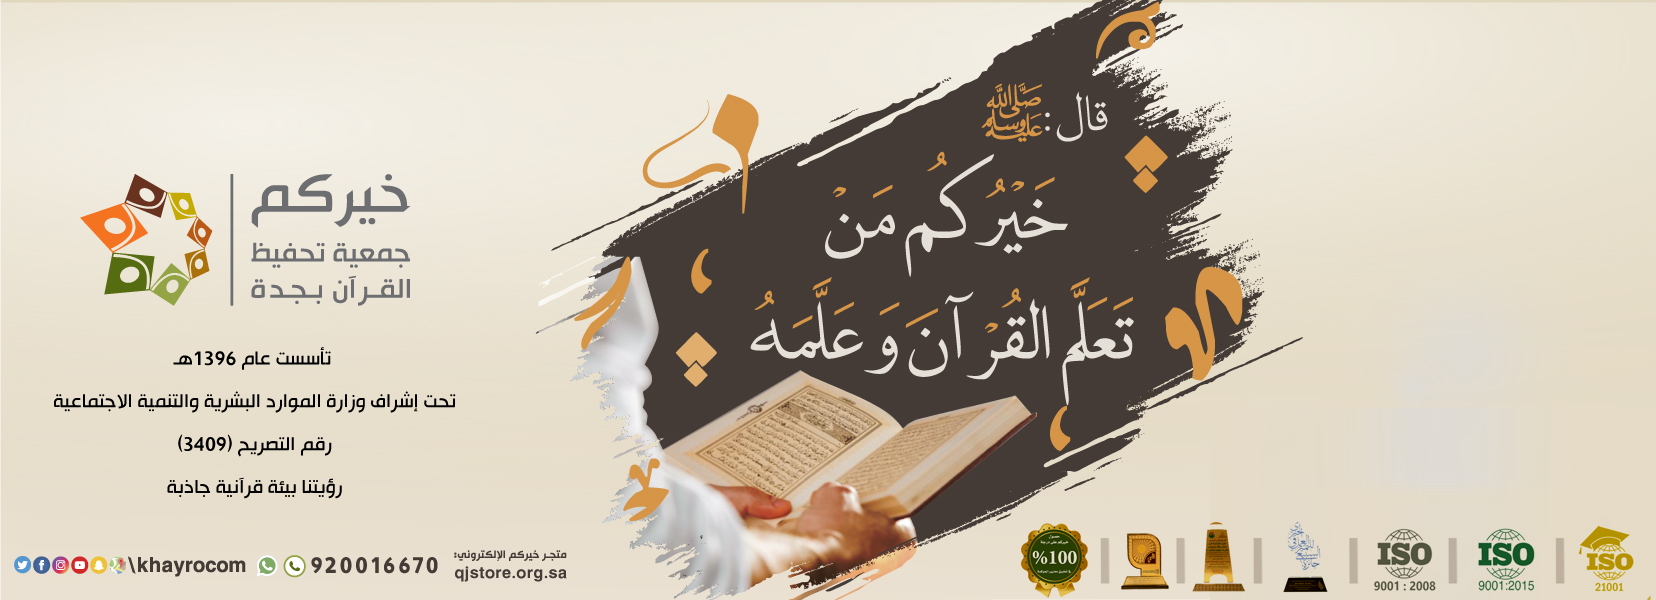 قال: صلى الله عليه وسلم
خَيْرُكُم مَنْ
تَعَلَّم القُرْآنَ وَ عَلَّمَهُ
خيركم
جمعية تحفيظ
القرآن بجدة
تأسست عام 1396هـ
تحت إشراف وزارة الموارد البشرية والتنمية الاجتماعية
رقم التصريح (3409)
رؤيتنا بيئة قرآنية جاذبة
\khayrocom
920016670
متجر خيركم الإلكتروني:
qjstore.org.sa
%100
ISO
9001 : 2008
ISO
9001:2015
ISO
21001